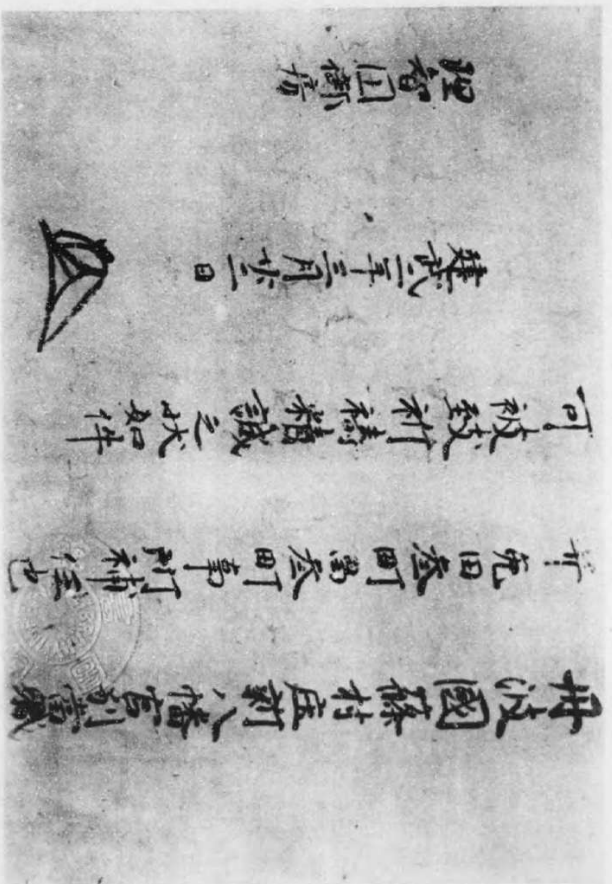 丹波國篠村庄新八幡宮別當職
并免田叄町畠叄町事所補任也
可被致祈禱精誠之状如件
建武二年三月廿二日
理智円御房